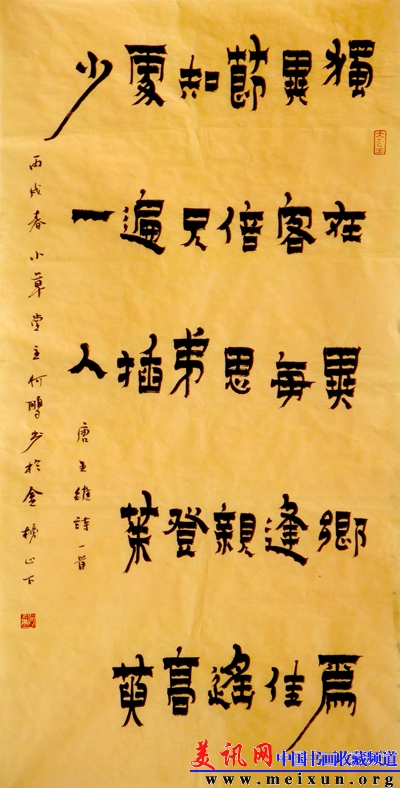 獨在異鄉為
異客每逢佳
節倍思親遙
知兄弟登高
處遍插茱萸
少一人
唐王維詩一首
丙戌春小草堂主何鵬书於金榜山下
美讯网 中国书画收藏频道
www.meixun.org